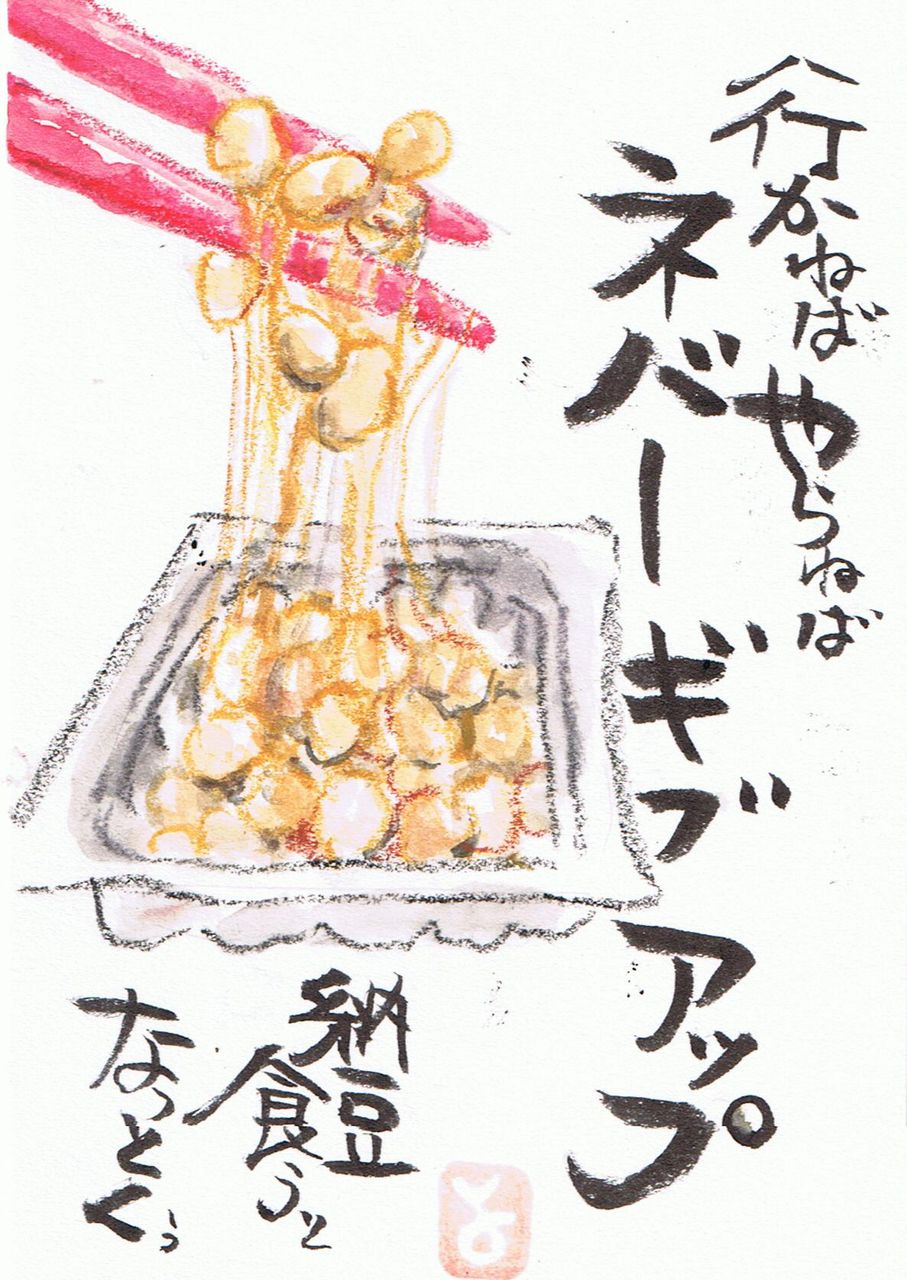 行かねばやらねば
ネバーギブアップ
納豆
食うと
なっとくぅ
とよ